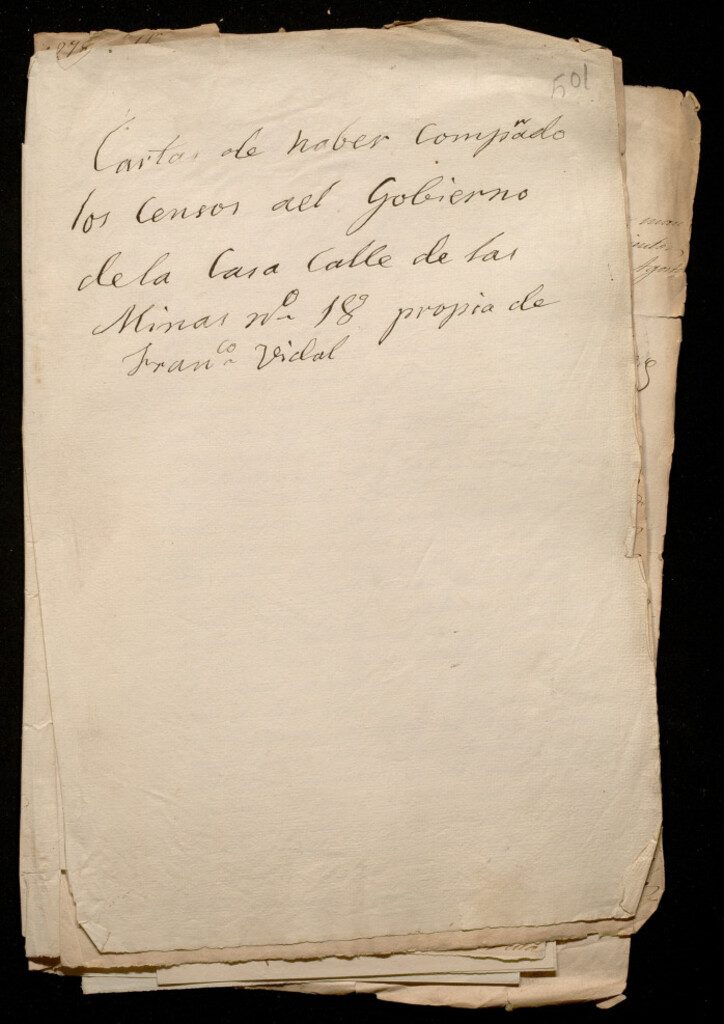 501
Cartas de haber comprado
los Censos del Gobierno
dela Casa Calle de las
Minas nº 18º propia de
Franco Vidal